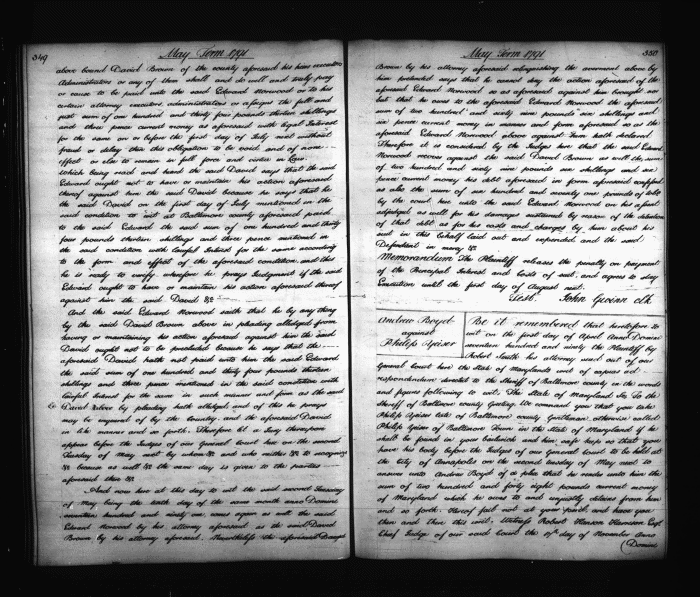 349
May Term 1791
above bound David Brown of the county aforesaid his heirs executors
Administrators or any of them shall and do well and truly pay
or cause to be paid unto the said Edward Norwood or to his
certain attorney executors administrators or assigns the full and
just sum of one hundred and thirty four pounds thirteen shillings
and three pence current money as aforesaid with legal Interest
for the same on or before the first day of July next without
fraud or delay then this obligation to be void and of none
effect or else to remain in full force and virtue in Law.
Which being read and heard the said David says that the said
Edward ought not to have or maintain his action aforesaid
thereof against him the said David because he says that he
the said David on the first day of July mentioned in the
said condition to wit at Baltimore county aforesaid paid
to the said Edward the said sum of one hundred and thirty
four pounds thirteen shillings and three pence mentioned in
the said condition with lawful Interest for the same according
to the form and effect of the aforesaid condition and this
he is ready to verify wherefore he prays Judgment if the said
Edward ought to have or maintain his action aforesaid thereof
against him the said David &c
And the said Edward Norwood saith that he by any thing
by the said David Brown above in pleading alledged from
having or maintaining his action aforesaid against him the said
David ought not to be precluded because he says that the
aforesaid David hath not paid unto him the said Edward
the said sum of one hundred and thirty four pounds thirteen
shillings and three pence mentioned in the said condition with
lawful Interest for the same in such manner and form as the said
David above by pleading hath alledged and of this he prays
may be inquired of by the Country and the aforesaid David
in like manner and so forth. Therefore let a Jury thereupon
appear before the Judges of our General Court here on the second
Tuesday of May next by whom &c and who neither &c to recognize
&c because as well &c the same day is given to the parties
aforesaid there &c
And now here at this day to wit the said second Tuesday
of May being the tenth day of the same month anno Domini
seventeen hundred and ninety one comes again as well the said
Edward Norwood by his attorney aforesaid as the said David
Brown by his attorney aforesaid. Nevertheless the aforesaid David
May Term 1791
350
Brown by his attorney aforesaid relinquishing the averment above by
him pretended says that he cannot deny the action aforesaid of the
aforesaid Edward Norwood so as aforesaid against him brought nor
but that he owes to the aforesaid Edward Norwood the aforesaid
sum of two hundred and sixty nine pounds six shillings and
six pence current money in manner and form aforesaid as the
aforesaid Edward Norwood above against him hath declared
Therefore it is considered by the Judges here that the said Edward
Norwood recover against the said David Brown as well the sum
of two hundred and sixty nine pounds six shillings and six
pence current money his debt aforesaid in form aforesaid confessed
as also the sum of six hundred and seventy one pounds of tob°
by the court here unto the said Edward Norwood on his assent
adjudged as well for his damages sustained by reason of the detention
of that debt as for his costs and charges by him about his
suit in this behalf laid out and expended and the said
Defendant in mercy &c
Memorandum The Plaintiff releases the penalty on payment
of the Principal Interest and Costs of suit and agrees to stay
Execution until the first day of August next.
Test. John Gwinn clk.
Andrew Boyd
against
Philip Yeiser
Be it remembered that heretofore to
wit on the first day of April Anno Domini
seventeen hundred and ninety the Plaintiff by
Robert Smith his attorney sued out of our
General Court here the State of Marylands writ of capias ad
respondendum directed to the Sheriff of Baltimore county in the words
and figures following to wit. The State of Maryland Ss To the
Sheriff of Baltimore county Greeting. We command you that you take
Philip Yeiser late of Baltimore county Gentleman otherwise called
Philip Yeiser of Baltimore Town in the State of Maryland if he
shall be found in your bailiwick and him safe keep so that you
have his body before the Judges of our General court to be held at
the City of Annapolis on the second tuesday of May next to
answer unto Andrew Boyd of a plea that he render unto him the
sum of two hundred and forty eight pounds current money
of Maryland which he owes to and unjustly detains from him
and so forth. Hereof fail not at your peril and have you
then and there this writ. Witness Robert Hanson Harrison Esqr.
Chief Judge of our said Court the 10th day of November Anno
(Domini